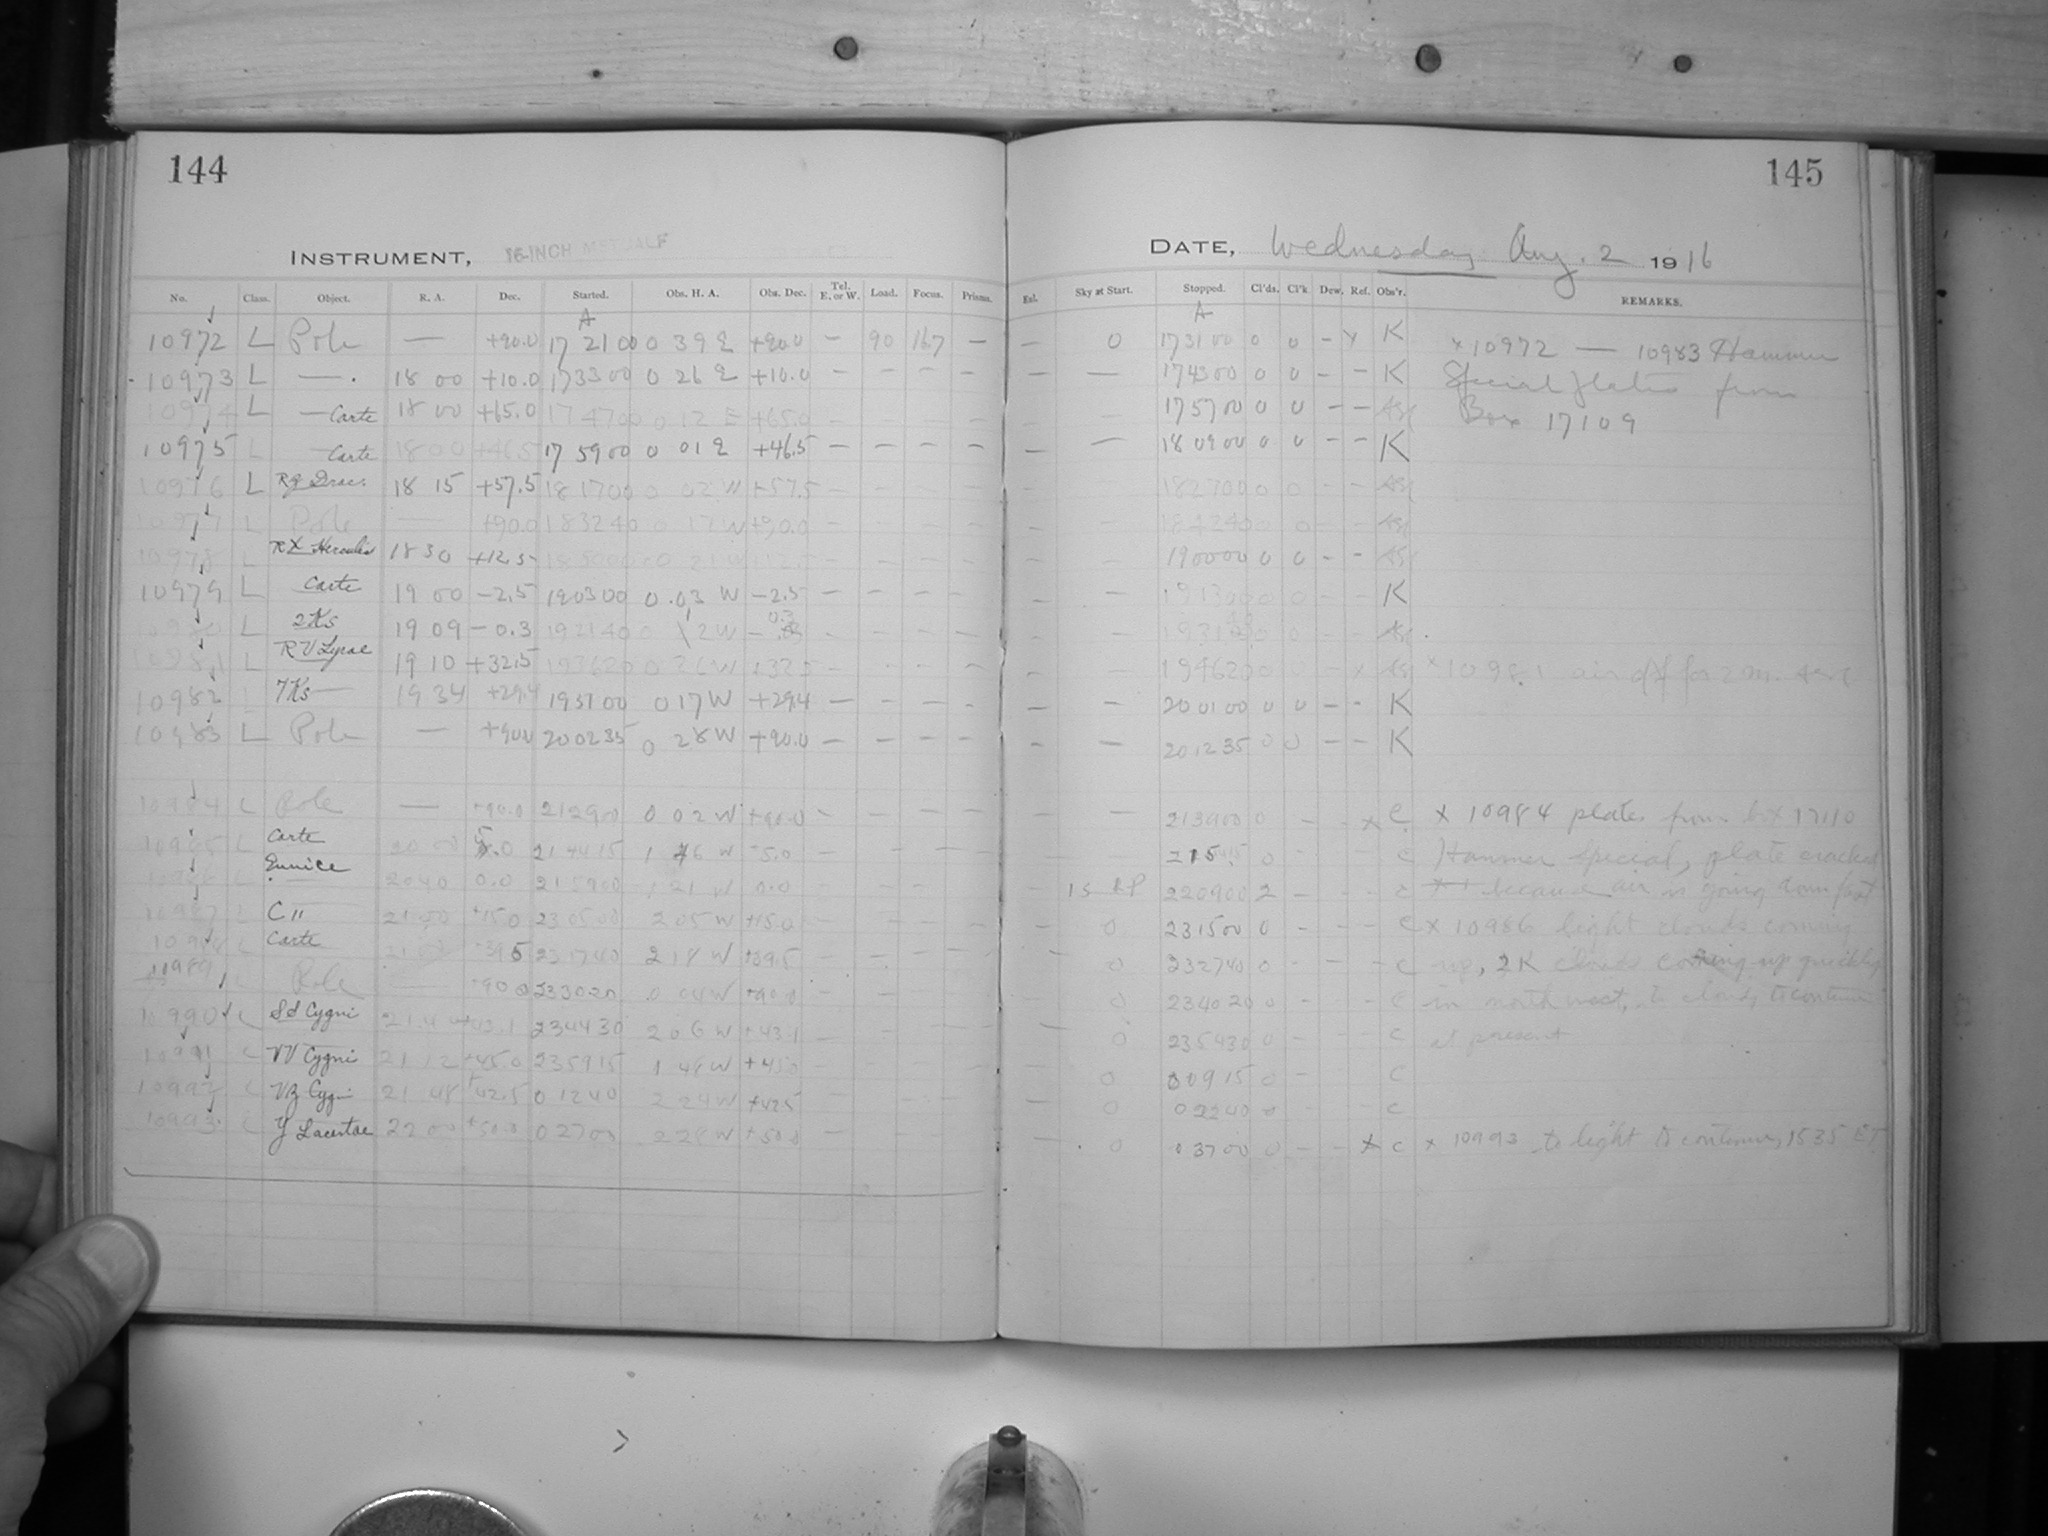 144
145
INSTRUMENT, 16-INCH METCALF
DATE, Wednesday Aug. 2 1916
No. Class. Object. R. A. Dec. Started. Obs. H. A. Obs. Dec. Tel. E. or W. Load. Focus. Prisms. Exl. Sky at Start. Stopped. Cl'ds. Cl'k Dew. Ref. Obs'r. REMARKS.
A A
10972 L Pole — +90.0 17 21 00 0 39 E +90.0 — 90 16.7 — — 0 17 31 00 0 0 - x K x 10972 — 10983 Hammer
10973 L — . 18 00 +10.0 17 33 00 0 26 E +10.0 — — — — — — 17 43 00 0 0 - - K Special plates from
10974 L — Carte 18 00 +65.0 17 47 00 0 12 E +65.0 — — — — — — 17 57 00 0 0 - - Box 17109
10975 L — Carte 18 00 +46.5 17 59 00 0 01 E +46.5 — — — — — — 18 09 00 0 0 - - K
10976 L RZ Drac. 18 15 +57.5 18 17 00 0 02 W +57.5 — — — — — — 18 27 00 0 0 - -
10977 L Pole — +90.0 18 32 40 0 17 W +90.0 — — — — — — 18 42 40 0 0 - -
10978 L RX Herculis 18 30 +12.5 18 50 00 0 21 W — — — — — — 19 00 00 0 0 - -
10979 L Carte 19 00 -2.5 19 03 00 0 03 W -2.5 — — — — — — 19 13 00 0 0 - - K
10980 L 2Ks 19 09 -0.3 19 21 40 0 12 W — — — — — — 0 0 - -
10981 L RV Lyrae 19 10 +32.5 19 36 20 0 26 W +32.5 — — — — — — 19 46 20 0 0 - x x 10981 air off for 2m.
10982 L 7Ks — 19 34 +29.4 19 51 00 0 17 W +29.4 — — — — — — 20 01 00 0 0 - - K
10983 L Pole — +90.0 20 02 35 0 28 W +90.0 — — — — — — 20 12 35 0 0 - - K
10984 L Pole — +90.0 21 29 00 0 02 W +90.0 — — — — — — 21 39 00 0 - - x C x 10984 plates from box 17110
10985 L Carte 20 00 21 44 15 W -5.0 — — — — — 0 - - - C Hammer Special, plate cracked
10986 L Eunice 20 40 0.0 21 59 00 1 21 W 0.0 — — — — — 22 09 00 2 - - - C because air is going from fast
10987 L C" 21 00 +15.0 23 05 00 2 05 W +15.0 — — — — — 0 23 15 00 0 - - - C x 10986 light clouds coming
10988 L Carte +39.5 23 17 40 2 18 W +39.5 — — — — — 0 23 27 40 0 - - - C up, 2K clouds coming up quickly
10989 L Pole — +90.0 23 30 20 0 04 W +90.0 — — — 0 23 40 20 0 - - - C in northwest, to cloudy to continue
10990 L Sd Cygni +43.1 23 44 30 2 06 W +43.1 — — — — — 0 23 54 30 0 - - - C at present
10991 L VV Cygni 21 12 +45.0 23 59 15 1 46 W +45.0 — — — — — 0 0 09 15 0 - - - C
10992 L VZ Cygni 21 48 +42.5 0 12 40 2 24 W +42.5 — — — — — 0 0 22 40 0 - - - C
10993 L Y Lacertae 22 00 +50.0 0 27 00 2 28 W +50.0 — — — — — 0 0 37 00 0 - - x C x 10993 to light to continue, 1535 ET